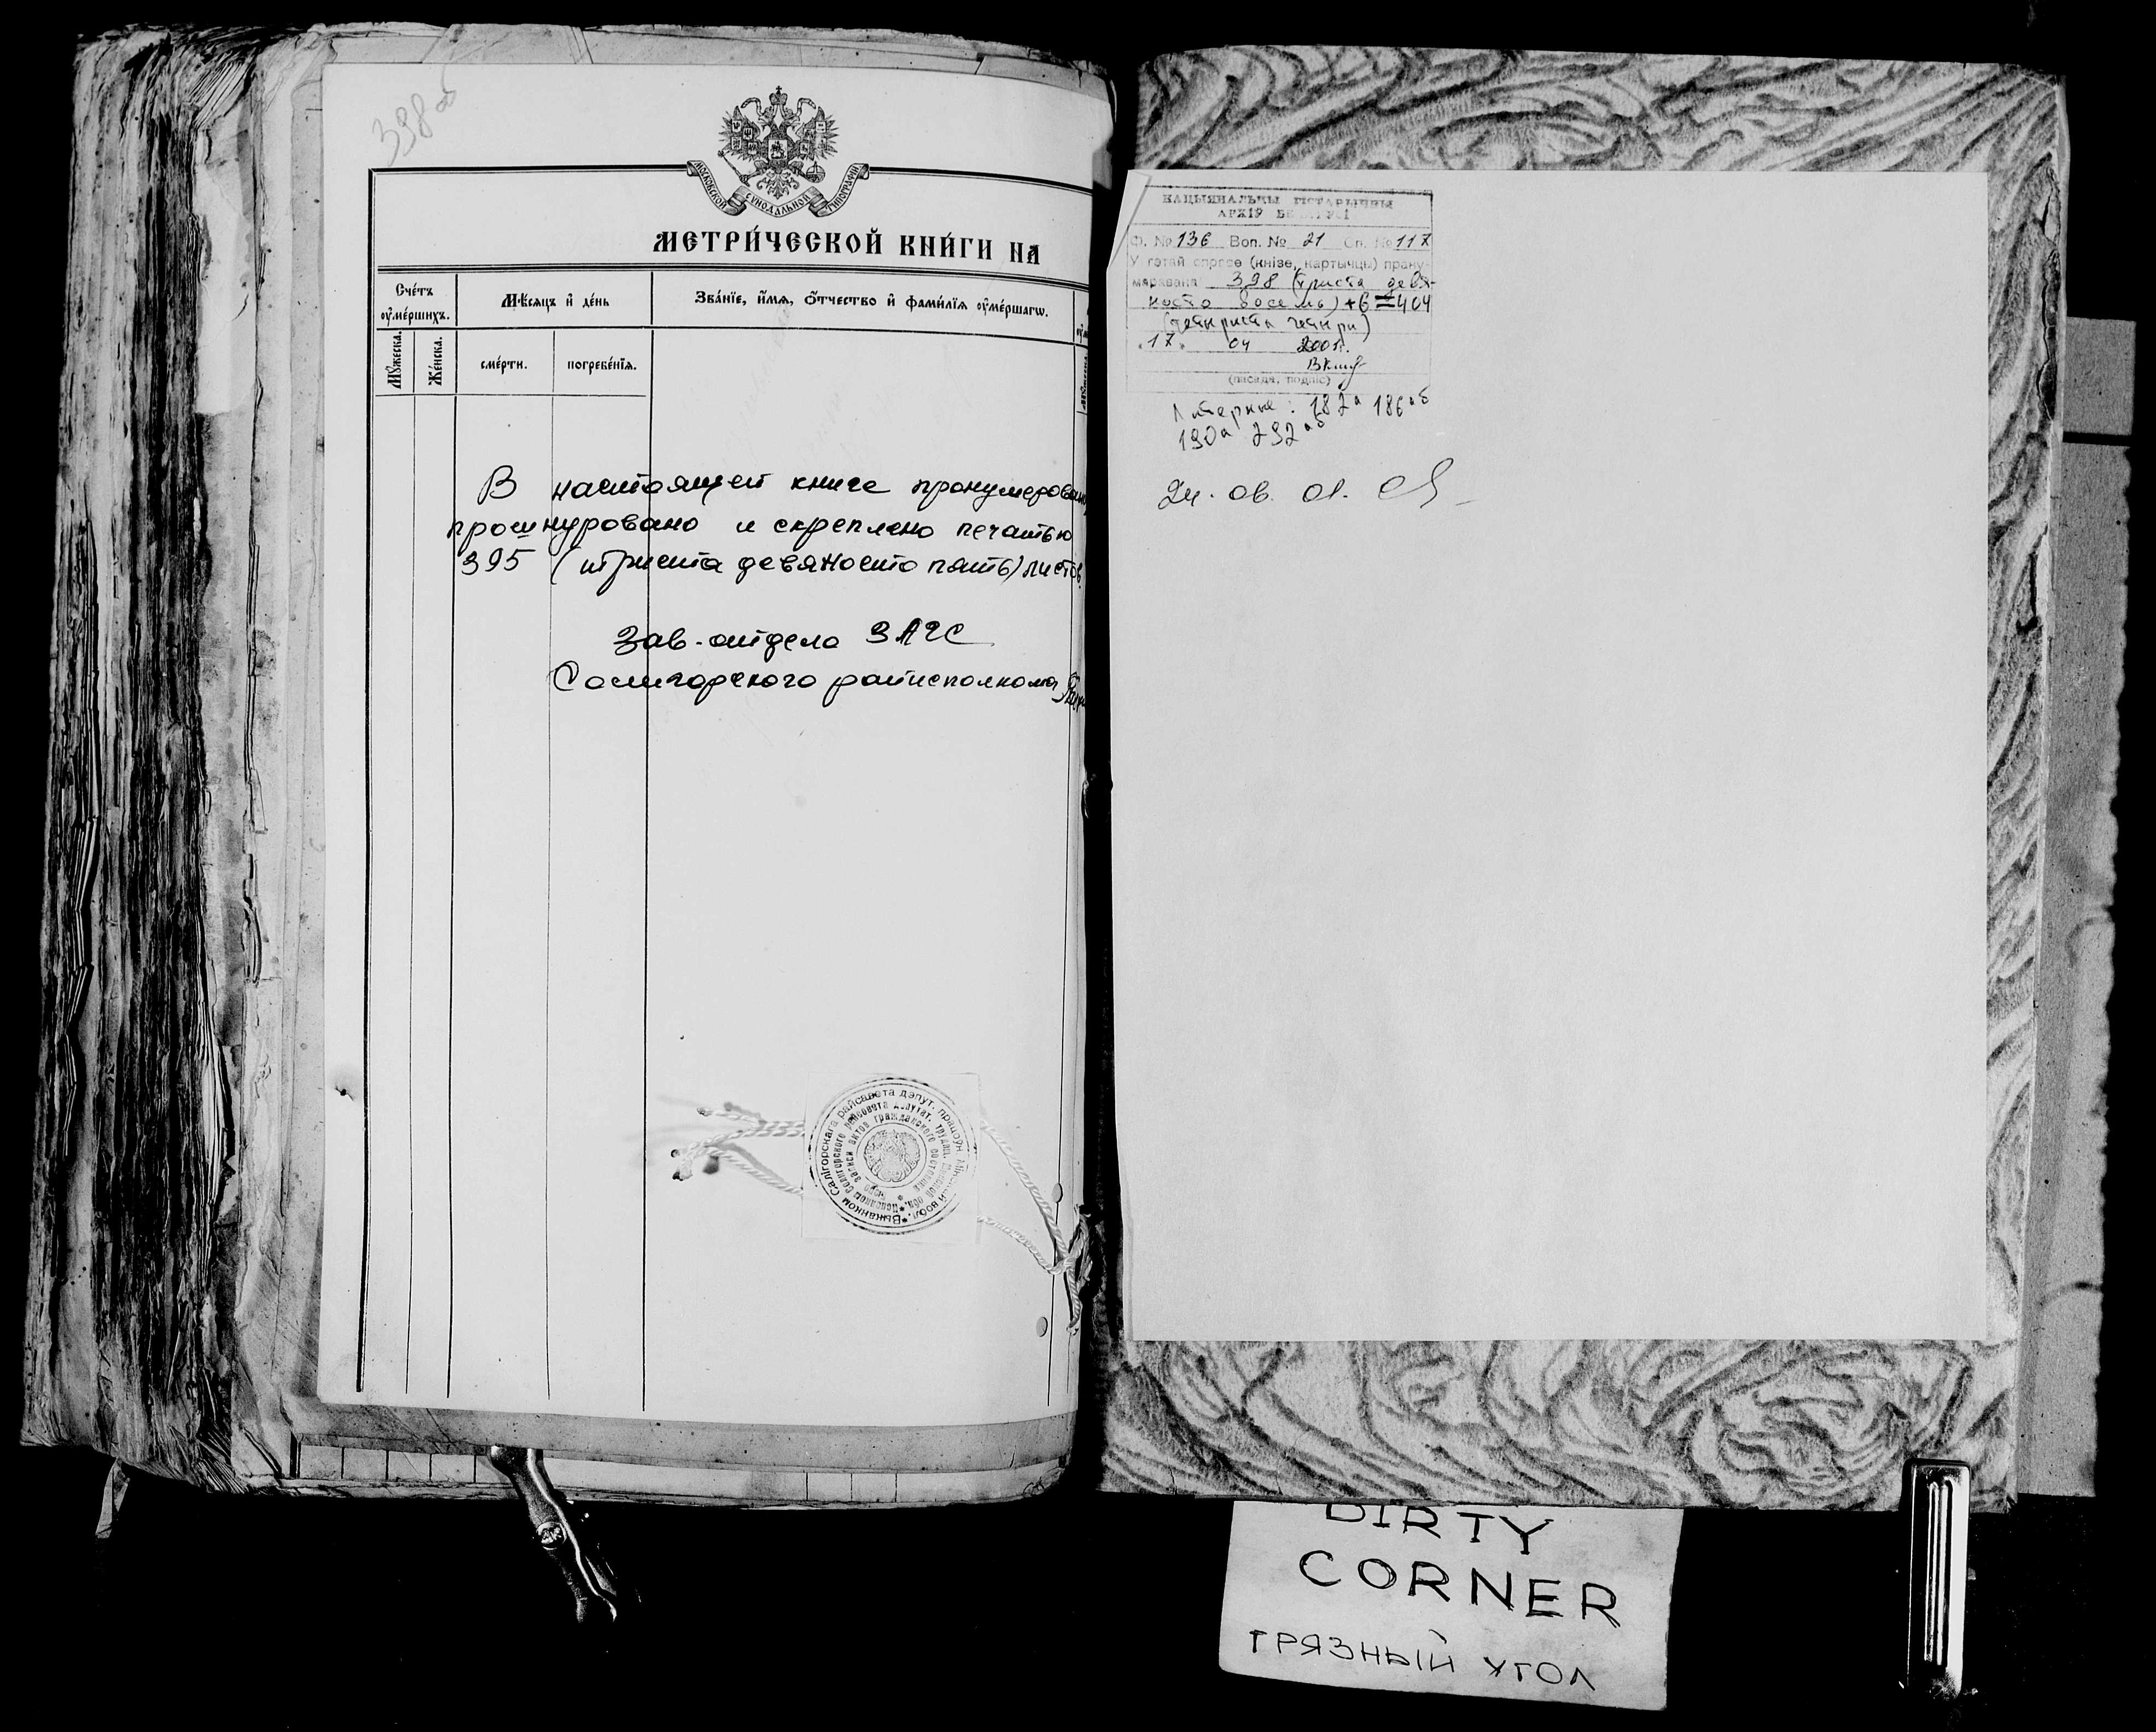 398об
МОСКОВСКОЙ СѴНОДАЛЬНОЙ ТИПОГРАФІИ
МЕТРИ́ЧЕСКОЙ КНИ́ГИ НА
Сче́тъ ᲂу҆ме́ршихъ.
Мѣ́сѧцъ и҆ де́нь
Зва́нїе, и҆́мѧ, ѻ҆́тчество и҆ фами́лїѧ ᲂу҆ме́ршагѡ.
Мꙋ́жеска.
Же́нска.
сме́рти.
погребе́нїѧ.
В настоящей книге пронумеровано
прошнуровано и скреплено печатью
395 (триста девяносто пять) листов.
Зав. отдела ЗАГС
Солигорского райисполкома
Выканком Салігорскага райсавета дэпут. працоўн. Мінскай вобл.
Исполком Солигорского райсовета депутат. трудящ. Минской обл.
Бюро записи актов гражданского состояния
НАЦЫЯНАЛЬНЫ ГІСТАРЫЧНЫ
АРХІЎ БЕЛАРУСІ
Ф. № 136 Воп. № 21 Сп. № 117
У гэтай справе (кнізе, картычцы) прану-
маравана 398 (триста девя-
носто восемь) +6=404
(четыреста четыри)
"17" 04 2001г.
(пасада, подпіс)
Литерные: 182а 186аб
190а 292аб
24. 08. 01.
DIRTY
CORNER
ГРЯЗНЫЙ УГОЛ